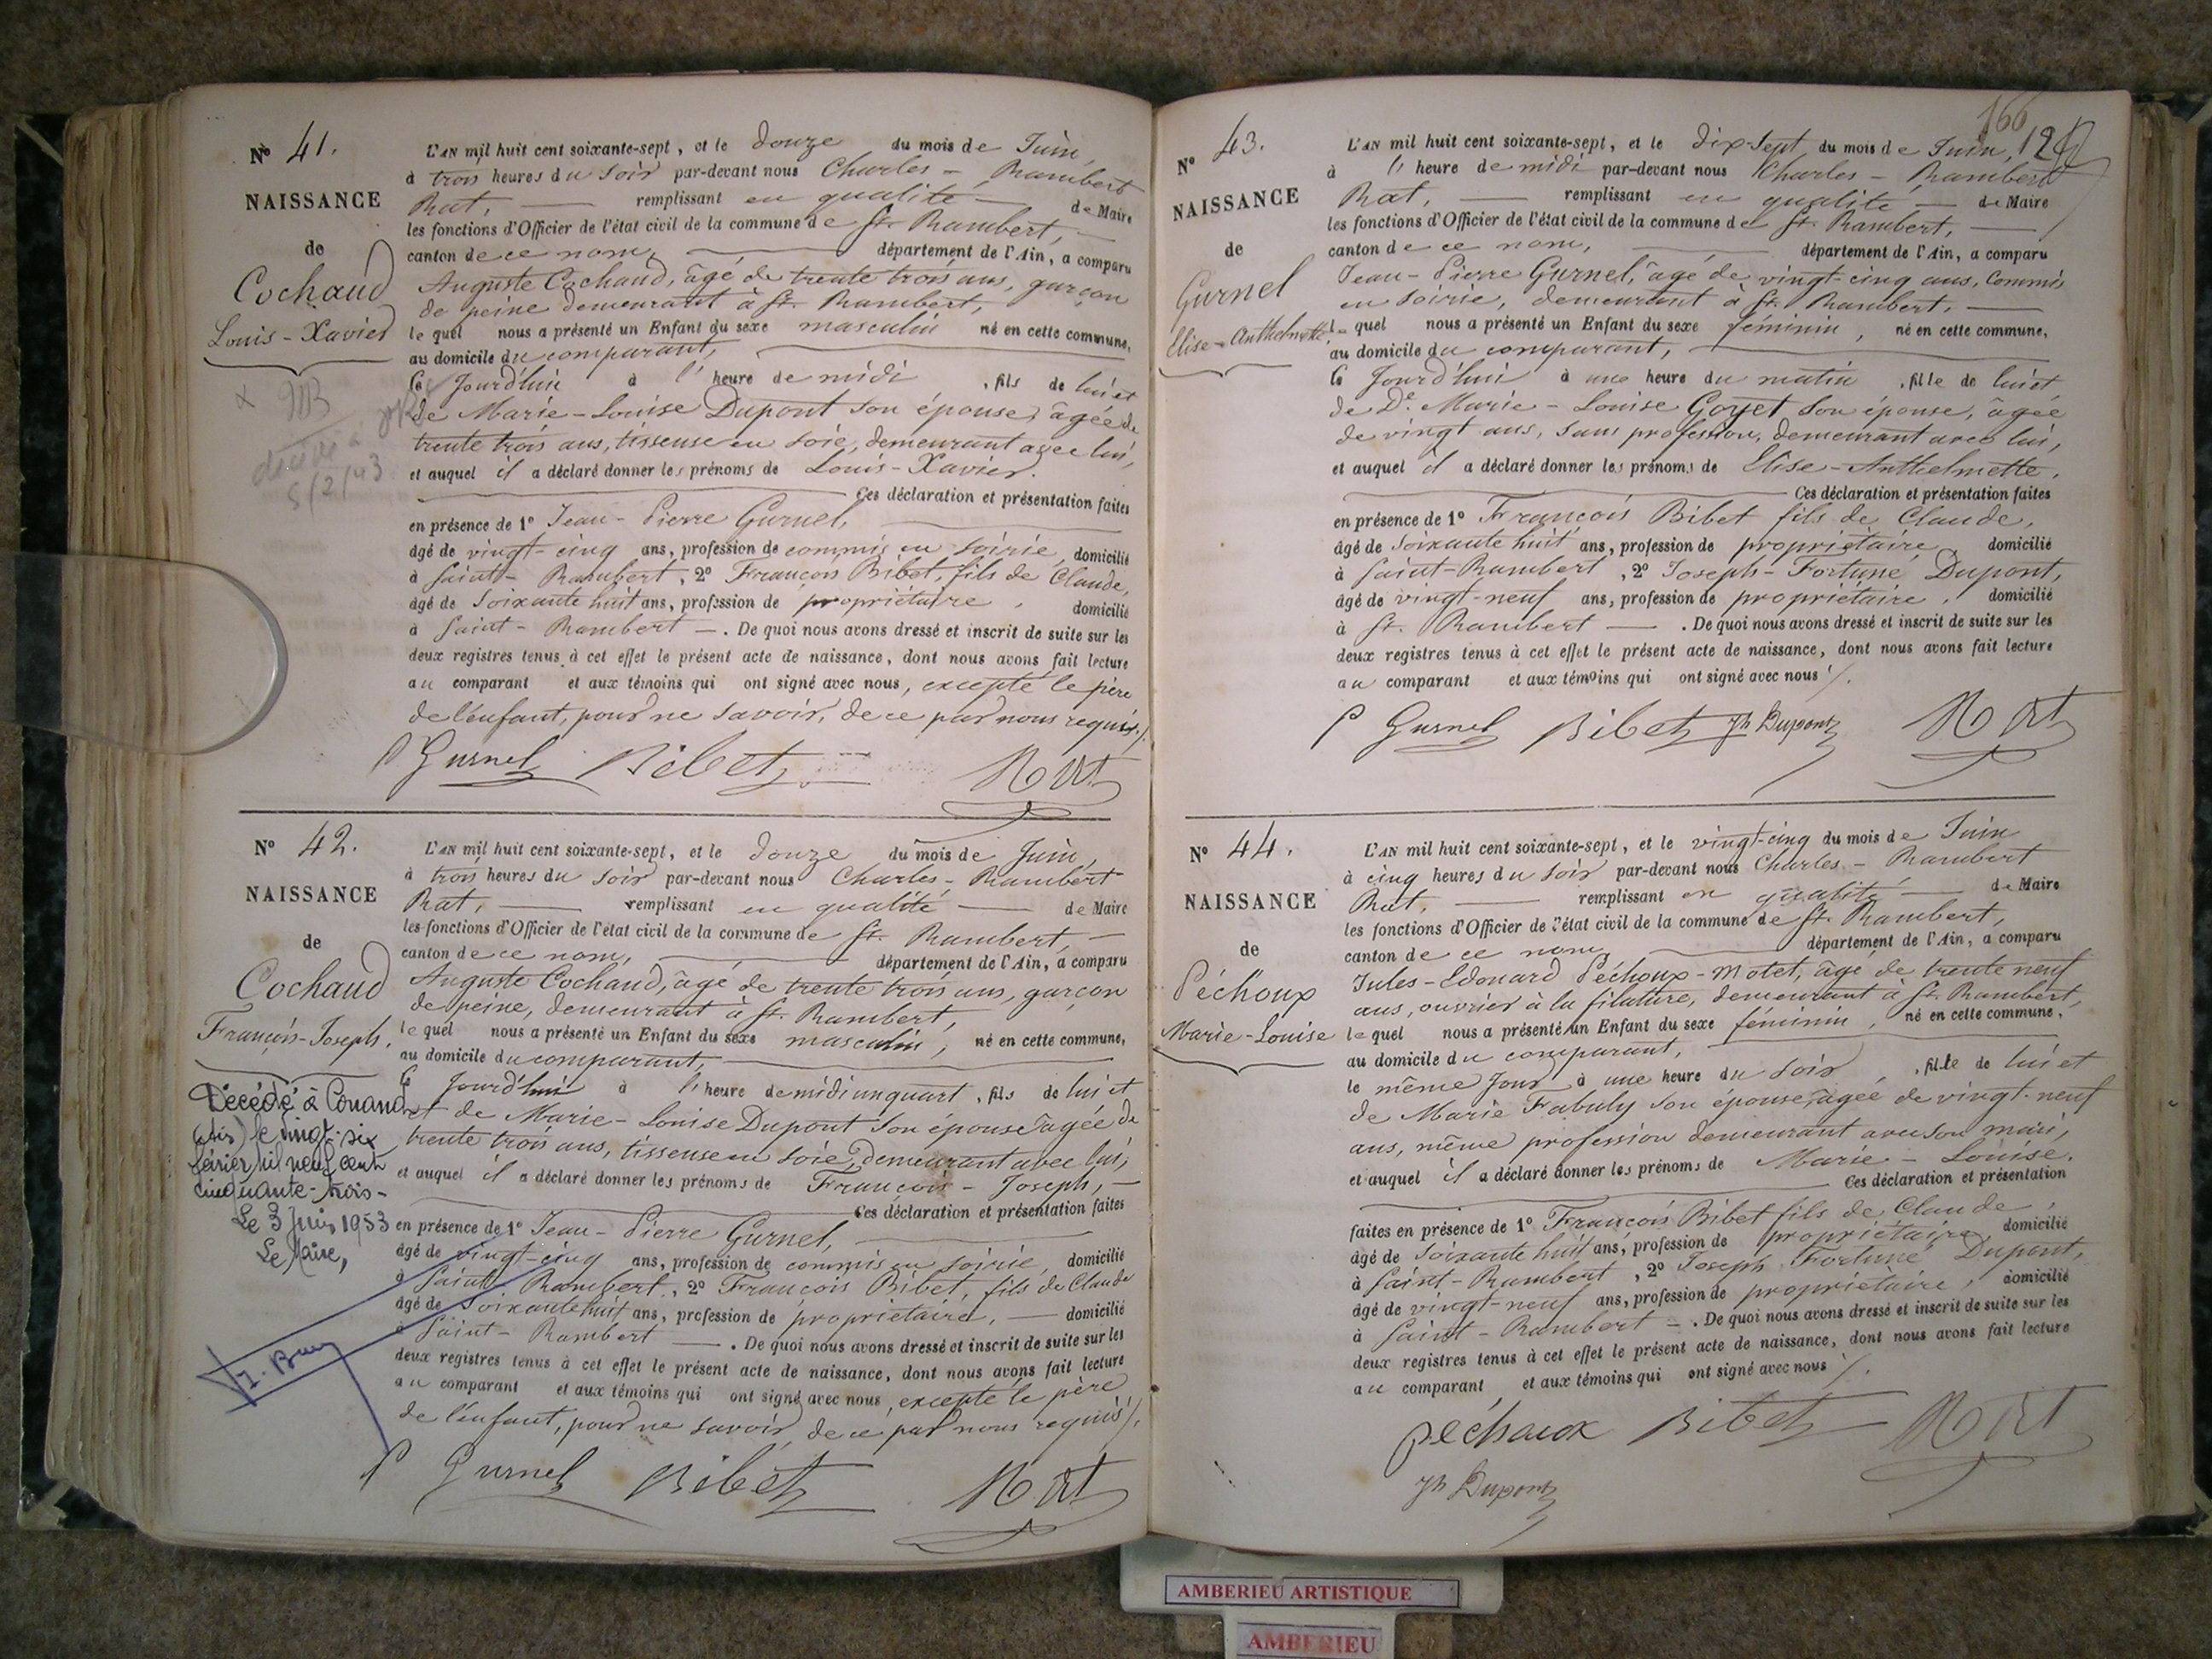 Nº 41.
NAISSANCE
de
Cochaud
Louis-Xavier
décédé
8/2/43
L'AN mil huit cent soixante-sept, et le douze du mois de Juin,
à trois heures du soir par-devant nous Charles-Rambert
Rat, remplissant en qualité de Maire
les fonctions d'Officier de l'état civil de la commune de St. Rambert,
canton de ce nom, département de l'Ain, a comparu
Auguste Cochaud, âgé de trente trois ans, garçon
de peine demeurant à St. Rambert,
le quel nous a présenté un Enfant du sexe masculin né en cette commune,
au domicile du comparant,
Ce Jourd'hui à l'heure de midi, fils de lui et
de Marie-Louise Dupont son épouse, âgée de
trente trois ans, tisseuse en soie, demeurant avec lui,
et auquel il a déclaré donner les prénoms de Louis-Xavier.
Ces déclaration et présentation faites
en présence de 1º Jean-Pierre Gurnel,
âgé de vingt-cinq ans, profession de commis en soirie, domicilié
à Saint-Rambert, 2º François Bibet, fils de Claude,
âgé de soixante huit ans, profession de propriétaire, domicilié
à Saint-Rambert —. De quoi nous avons dressé et inscrit de suite sur les
deux registres tenus à cet effet le présent acte de naissance, dont nous avons fait lecture
au comparant et aux témoins qui ont signé avec nous, excepté le père
de l'enfant, pour ne savoir, de ce par nous requis./.
P Gurnel Bibet R Rat
Nº 42.
NAISSANCE
de
Cochaud
François-Joseph.
Décédé à Conand
(Ain) le vingt-six
février mil neuf cent
cinquante-trois-
Le 3 Juin 1953
Le Maire,
L'AN mil huit cent soixante-sept, et le douze du mois de Juin,
à trois heures du soir par-devant nous Charles-Rambert
Rat, remplissant en qualité de Maire
les fonctions d'Officier de l'état civil de la commune de St. Rambert,
canton de ce nom, département de l'Ain, a comparu
Auguste Cochaud, âgé de trente trois ans, garçon
de peine, demeurant à St. Rambert,
le quel nous a présenté un Enfant du sexe masculin, né en cette commune,
au domicile du comparant,
Ce Jourd'hui à l'heure de midi un quart, fils de lui et
et de Marie-Louise Dupont son épouse âgée de
trente trois ans, tisseuse en soie, demeurant avec lui,
et auquel il a déclaré donner les prénoms de François-Joseph,
Ces déclaration et présentation faites
en présence de 1º Jean-Pierre Gurnel,
âgé de vingt-cinq ans, profession de commis en soirie, domicilié
à Saint Rambert, 2º François Bibet, fils de Claude
âgé de soixante huit ans, profession de propriétaire, — domicilié
à Saint-Rambert —. De quoi nous avons dressé et inscrit de suite sur les
deux registres tenus à cet effet le présent acte de naissance, dont nous avons fait lecture
au comparant et aux témoins qui ont signé avec nous, excepté le père
de l'enfant, pour ne savoir, de ce par nous requis/.
P Gurnel Bibet R Rat
166
Nº 43.
NAISSANCE
de
Gurnel
Elise-Anthelmette,
L'AN mil huit cent soixante-sept, et le dix-sept du mois de Juin,
à l'heure de midi par-devant nous Charles-Rambert
Rat, remplissant en qualité de Maire
les fonctions d'Officier de l'état civil de la commune de St. Rambert,
canton de ce nom, département de l'Ain, a comparu
Jean-Pierre Gurnel, âgé de vingt-cinq ans, commis
en soirie, demeurant à St. Rambert,
le quel nous a présenté un Enfant du sexe féminin, né en cette commune,
au domicile du comparant,
Ce Jourd'hui à une heure du matin, fille de lui et
de De. Marie-Louise Goyet son épouse, âgée
de vingt ans, sans profession, demeurant avec lui,
et auquel il a déclaré donner les prénoms de Elise-Anthelmette,
Ces déclaration et présentation faites
en présence de 1º François Bibet fils de Claude,
âgé de soixante huit ans, profession de propriétaire, domicilié
à Saint-Rambert, 2º Joseph-Fortuné Dupont,
âgé de vingt-neuf ans, profession de propriétaire, domicilié
à St. Rambert —. De quoi nous avons dressé et inscrit de suite sur les
deux registres tenus à cet effet le présent acte de naissance, dont nous avons fait lecture
au comparant et aux témoins qui ont signé avec nous /.
P Gurnel Bibet Jh Dupont R Rat
Nº 44.
NAISSANCE
de
Péchoux
Marie-Louise
L'AN mil huit cent soixante-sept, et le vingt-cinq du mois de Juin
à cinq heures du soir par-devant nous Charles-Rambert
Rat, remplissant en qualité de Maire
les fonctions d'Officier de l'état civil de la commune de St. Rambert,
canton de ce nom, département de l'Ain, a comparu
Jules-Edouard Péchoux-Motet, âgé de trente neuf
ans, ouvrier à la filature, demeurant à St. Rambert,
le quel nous a présenté un Enfant du sexe féminin, né en cette commune,
au domicile du comparant,
le même Jour à une heure du soir, fille de lui et
de Marie Fabuly son épouse, âgée de vingt-neuf
ans, même profession demeurant avec son mari,
et auquel il a déclaré donner les prénoms de Marie-Louise.
Ces déclaration et présentation
faites en présence de 1º François Bibet fils de Claude,
âgé de soixante huit ans, profession de propriétaire, domicilié
à Saint-Rambert, 2º Joseph Fortuné Dupont,
âgé de vingt-neuf ans, profession de propriétaire, domicilié
à Saint-Rambert —. De quoi nous avons dressé et inscrit de suite sur les
deux registres tenus à cet effet le présent acte de naissance, dont nous avons fait lecture
au comparant et aux témoins qui ont signé avec nous /.
péchoux Bibet R Rat
Jh Dupont
AMBERIEU ARTISTIQUE
AMBERIEU